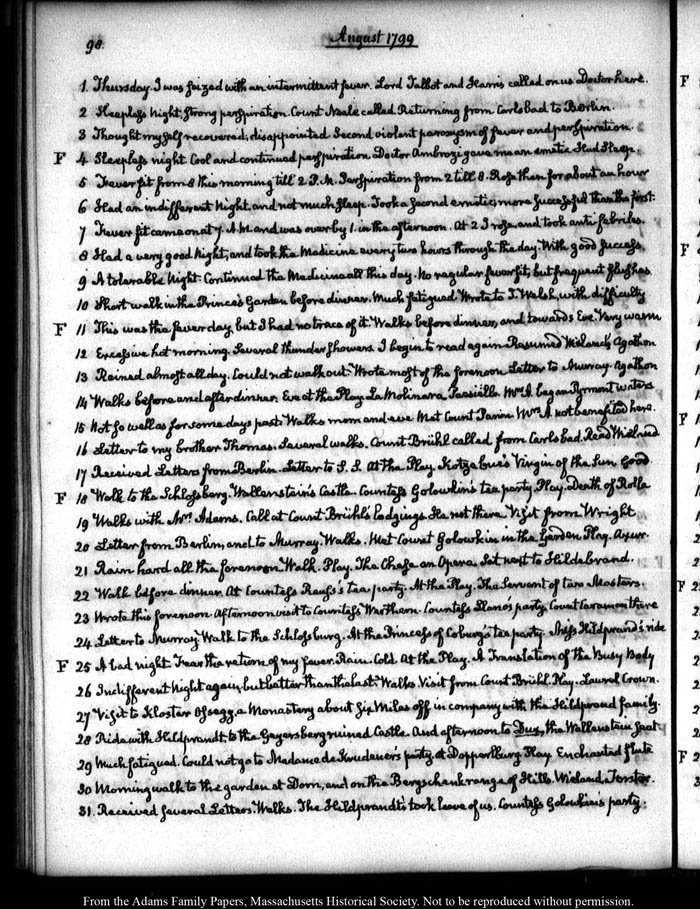 98.
August 1799
1. Thursday. I was seized with an intermittent fever. Lord Talbot and Harris called on us Doctor here.
2 Sleepless night, strong perspiration. Count Neale called Returning from Carlsbad to Berlin.
3 Thought myself recovered; disappointed Second violent paroxysm of fever and perspiration.
F 4. Sleepless night Cool and continued perspiration. Doctor Ambrozi gave me an emetic Had Sleep.
5 Fever fit from 8 this morning till 2 P.M. Perspiration from 2 till 8. Rose then for about an hour
6 Had an indifferent Night, and not much sleep. Took a second emetic; more successful than the first.
7 Fever fit came on at 7. A.M. and was over by 1. in the afternoon. At 2 I rose, and took anti-febriles.
8 Had a very good Night, and took the Medicine every two hours through the day. With good success.
9 A tolerable Night. Continued the Medicine all this day. No regular fever fit, but frequent flushes
10 Short walk in the Prince's Garden before dinner. Much fatigued Wrote to T. Welsh, with difficulty
F 11 This was the fever day, but I had no trace of it Walks before dinner, and towards Eve. Very warm
12 Excessive hot morning. Several thunder showers. I begin to read again Resumed Wieland's Agathon
13 Rained almost all day. Could not walk out Wrote most of the forenoon Letter to Murray. Agathon
14 Walks before and after dinner. Eve at the Play. La Molinara. Paesiello. Mrs. A. began Pyrmont waters
15 Not so well as for some days past Walks morn and eve Met Count Panin Mrs. A. not benefited here.
16 Letter to my brother Thomas. Several walks. Count Brühl called from Carlsbad. Read Wieland
17 Received Letters from Berlin. Letter to S. S. At the Play. Kotzebue's Virgin of the Sun. Good
F 18 Walk to the Schlossberg. Wallenstein's Castle. Countess Golowkin's tea party. Play. Death of Rolla
19 Walks with Mrs. Adams. Call at Count Brühl's lodgings He not there Visit from Wright
20 Letter from Berlin, and to Murray. Walks. Met Count Golowkin in the Garden. Play. Axur.
21 Rain hard all the forenoon Walk. Play. The Chase an Opera. Sat next to Hildebrand.
22 Walk before dinner. At Countess Reuss's tea party. At the Play. The Servant of two Masters.
23 Wrote this forenoon. Afternoon visit to Countess Werthern. Countess Llano's party. Count Caraman there
24. Letter to Murray Walk to the Schlossburg. At the Princess of Coburg's tea party. Miss Hildprand's ride
F 25 A bad night. Fear the return of my fever. Rain. Cold. At the Play. A Translation of the Busy Body
26 Indifferent Night again, but better than the last. Walks. Visit from Count Brühl. Play. Laurel Crown.
27 Visit to Kloster Ossegg, a Monastery about six Miles off in company with the Hildprand family.
28 Ride with Hildprandt to the Geyersberg ruined Castle And afternoon to Dux, the Wallenstein seat.
29 Much fatigued. Could not go to Madame de Krudener's party at Dopperlburg Play Enchanted flute
30 Morning walk to the garden at Dorn, and on the Bergschenk range of Hills. Wieland. Forster.
31. Received several Letters. Walks. The Hildprandts took leave of us. Countess Golowkin's party.
F
F
F
F
F
From the Adams Family Papers, Massachusetts Historical Society. Not to be reproduced without permission.